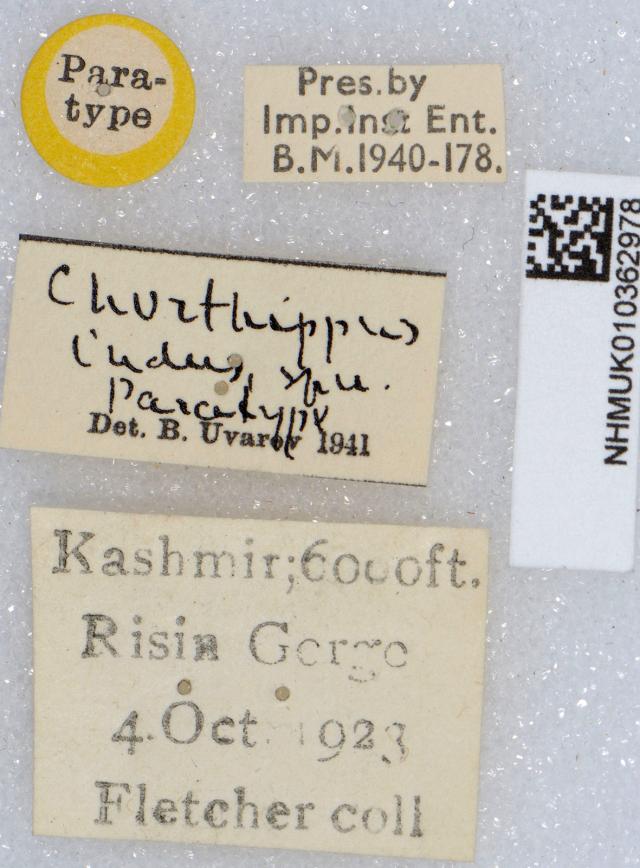 Para-
type
Pres.by
Imp.Inst Ent.
B.M.1940-178.
NHMUK010362978
Chorthippus
indus, spn.
Paratype
Det. B. Uvarov 1941
Kashmir;6000ft.
Risin Gorge
4.Oct. 1923
Fletcher coll